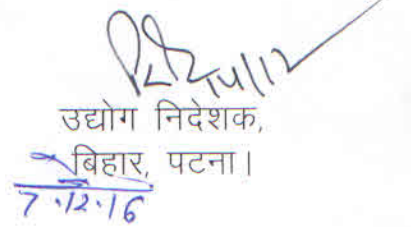 14/12
उद्योग निदेशक,
बिहार, पटना।
7.12.16